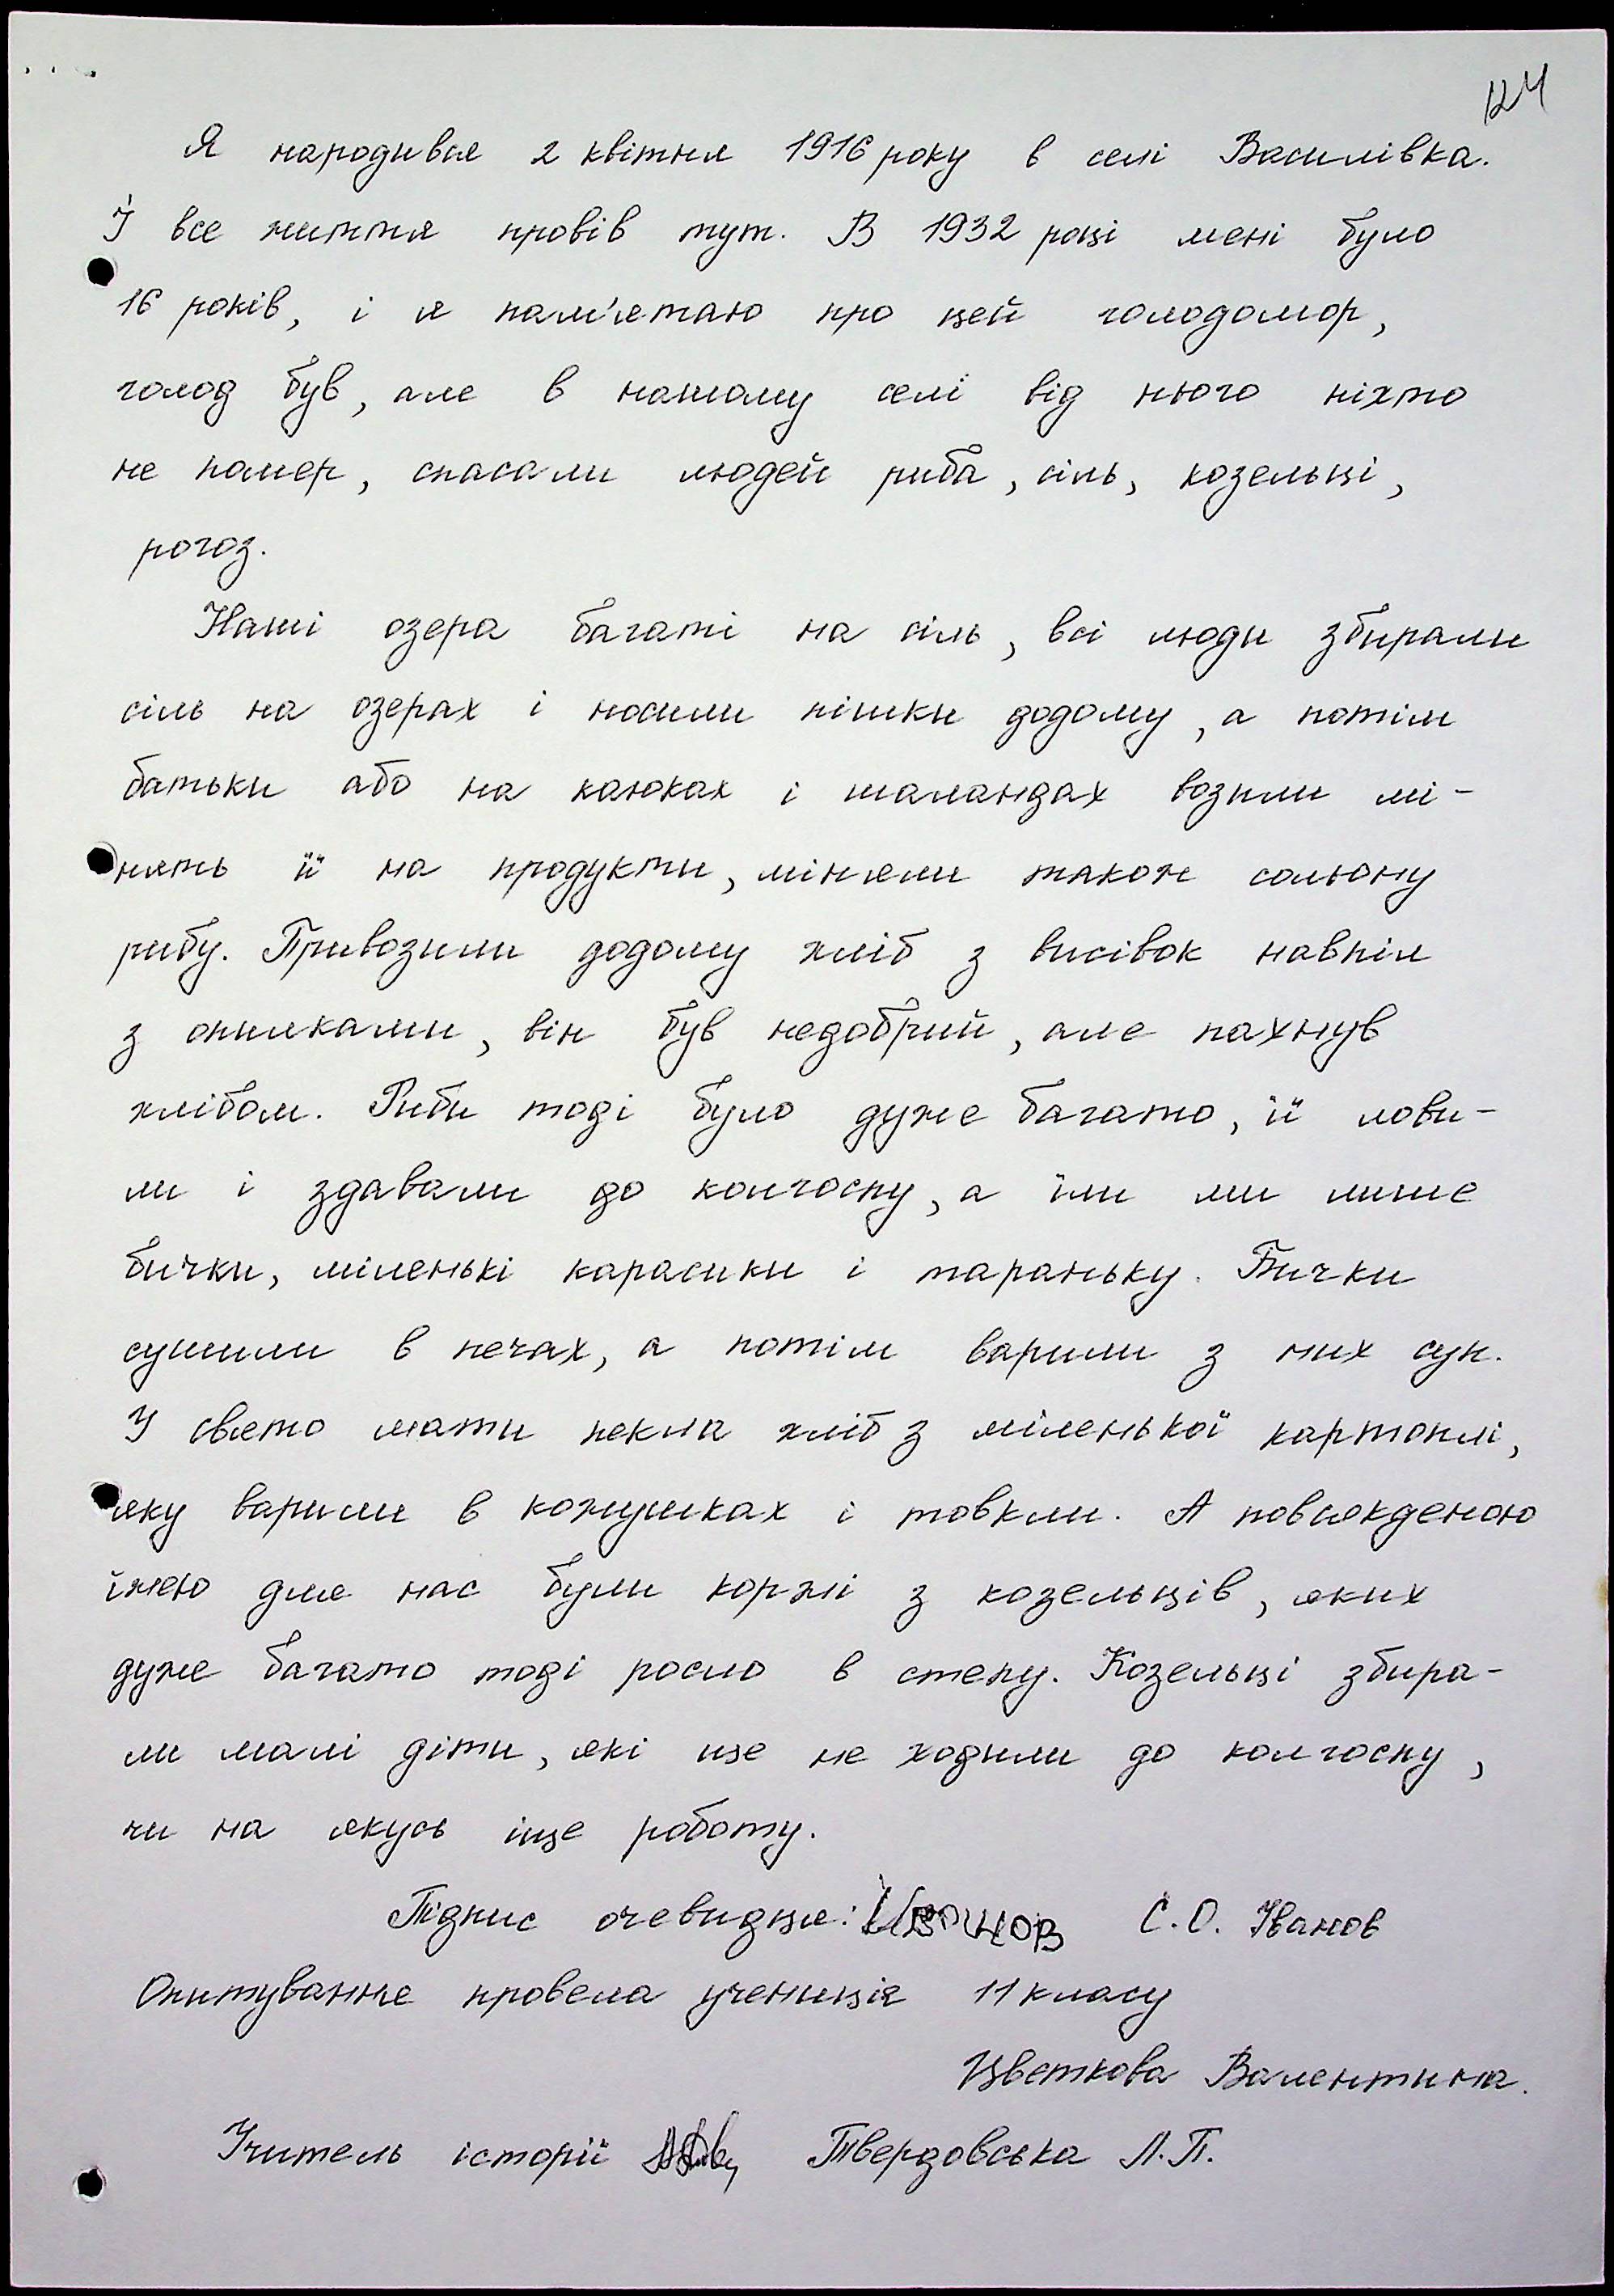 124
Я народився 2 квітня 1916 року в селі Василівка.
І все життя провів тут. В 1932 році мені було
16 років, і я пам'ятаю про цей голодомор,
голод був, але в нашому селі від нього ніхто
не помер, спасали людей риба, сіль, козельці,
рогоз.
Наші озера багаті на сіль, всі люди збирали
сіль на озерах і носили пішки додому, а потім
батьки або на каюках і шаландах возили мі-
нять її на продукти, міняли також сольону
рибу. Привозили додому хліб з висівок навпіл
з опилками, він був недобрий, але пахнув
хлібом. Риби тоді було дуже багато, її лови-
ли і здавали до колгоспу, а їли ми лише
бички, міленькі карасики і тараньку. Бички
сушили в печах, а потім варили з них суп.
У свято мати пекла хліб з міленької картоплі,
яку варили в кожушках і товкли. А повсякденою
їжею для нас були коржі з козельців, яких
дуже багато тоді росло в степу. Козельці збира-
ли малі діти, які ще не ходили до колгоспу,
чи на якусь іще роботу.
Підпис очевидця: Иванов С.О. Іванов
Опитування провела учениція 11 класу
Цветкова Валентина.
Учитель історії Твердовська Л.П.